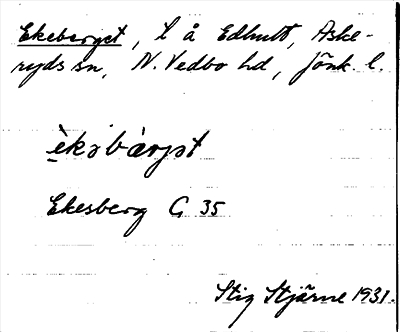 Ekeberget, l å Edhult, Aske-
ryds sn, N. Vedbo hd, Jönk. l.
è̱kəbærjət
Ekesberg G 35
Stig Stjärne 1931.